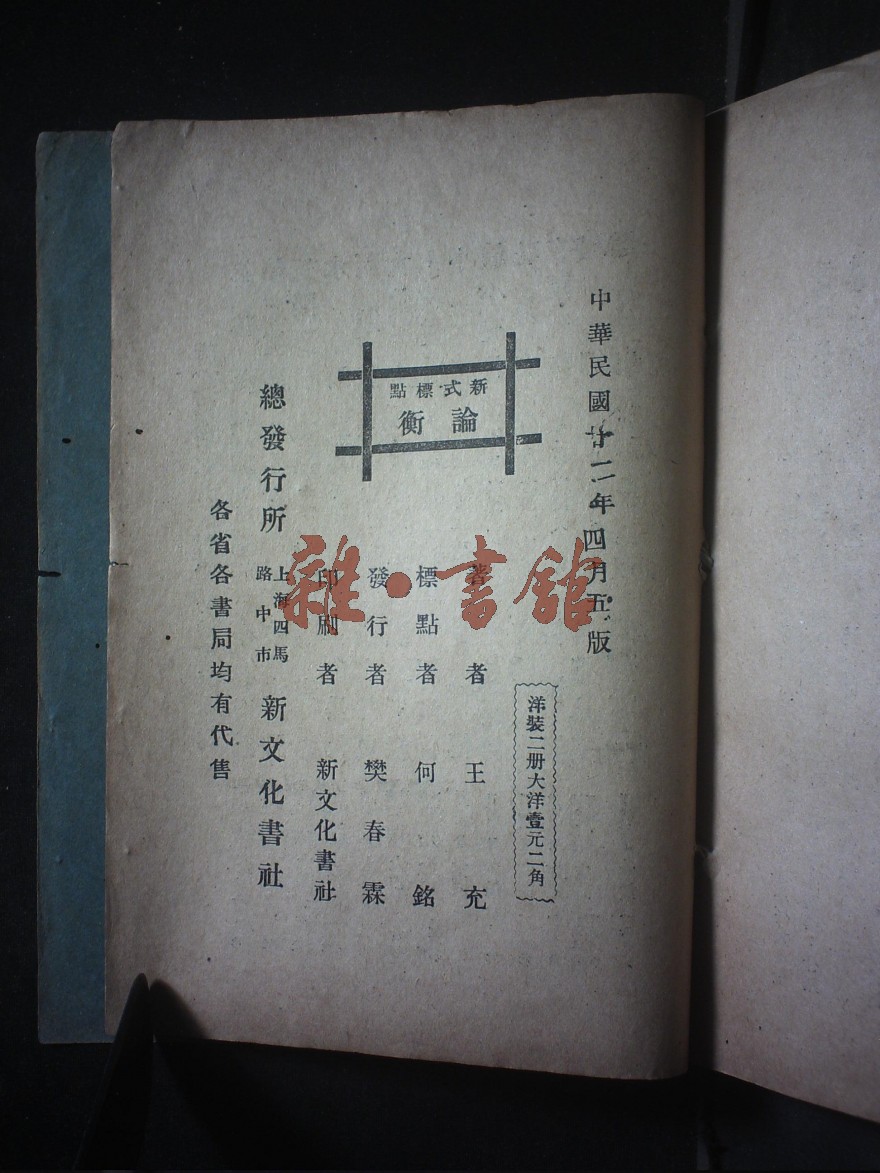 中華民國廿二年四月五版
洋裝二册大洋壹元二角
新式標點
論衡
著者 王充
標點者 何銘
發行者 樊春霖
印刷者 新文化書社
總發行所 上海四馬路中市 新文化書社
各省各書局均有代售
雜·書館